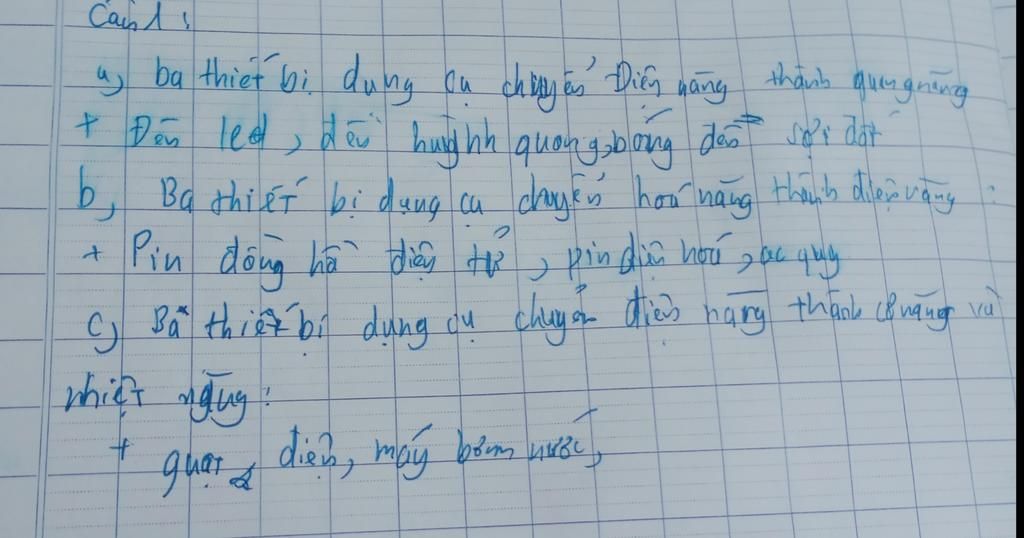 Câu 1:
a, ba thiết bị dụng cụ chuyển Điện năng thành quang năng
+ Đèn led, đèn huỳnh quang, bóng đèn sợi đốt
b, Ba thiết bị dụng cụ chuyển hoá năng thành điện năng:
+ Pin đồng hồ điện tử, pin điện hoá, ắc quy
c, Ba thiết bị dụng cụ chuyển điện năng thành cơ năng và
nhiệt năng:
+ quạt điện, máy bơm nước,